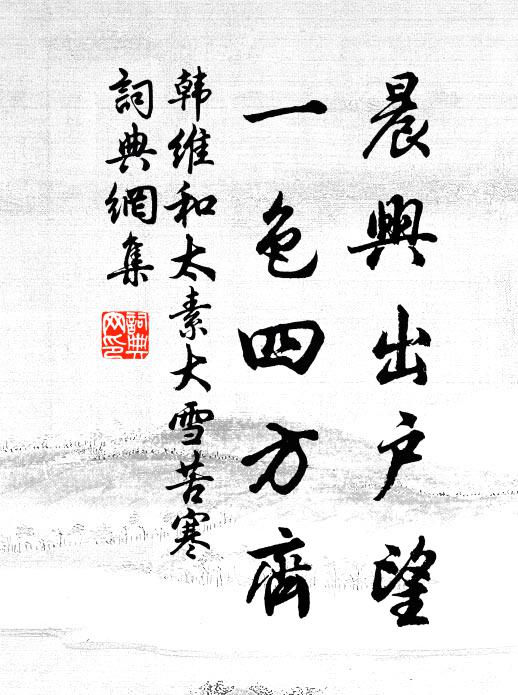 晨興出户望
一色四方齊
韩維和太素大雪苦寒
詞典網集
詞典
网印